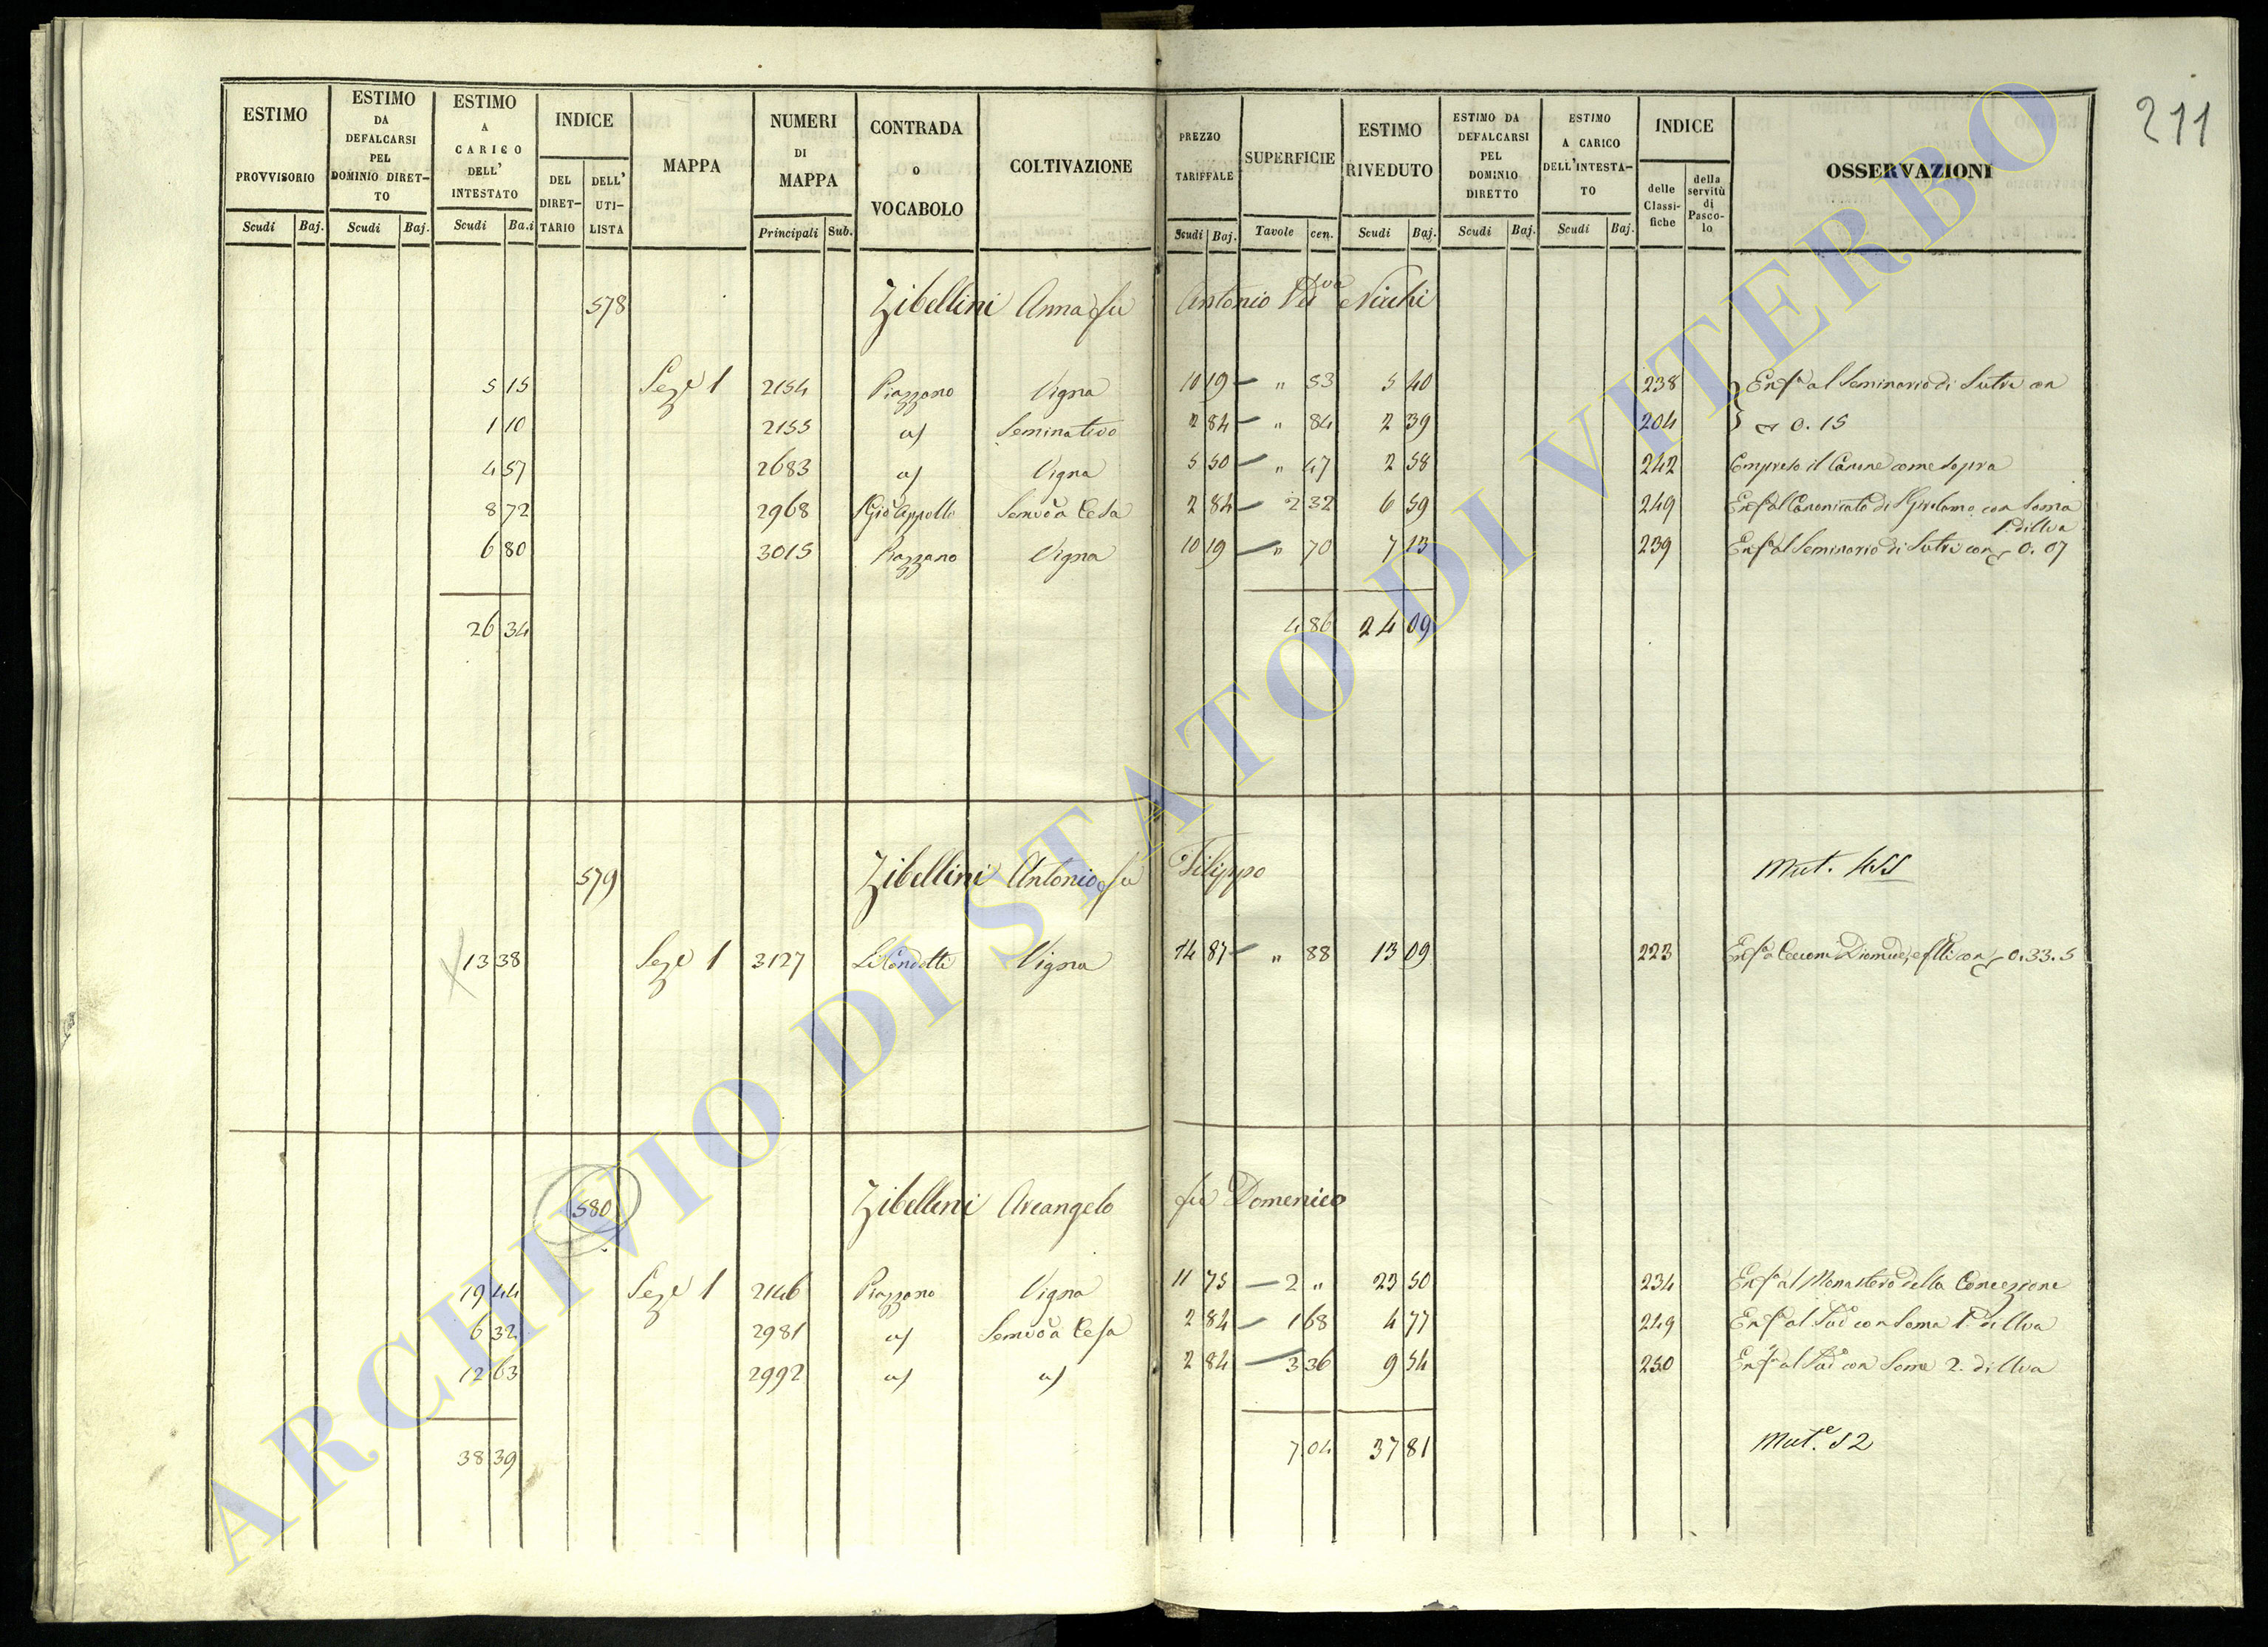 211
ESTIMO PROVVISORIO
ESTIMO DA DEFALCARSI PEL DOMINIO DIRET-TO
ESTIMO A CARICO DELL' INTESTATO
INDICE
DEL DIRET-TARIO
DELL' UTI-LISTA
MAPPA
NUMERI DI MAPPA
CONTRADA o VOCABOLO
COLTIVAZIONE
PREZZO TARIFFALE
SUPERFICIE
ESTIMO RIVEDUTO
ESTIMO DA DEFALCARSI PEL DOMINIO DIRETTO
ESTIMO A CARICO DELL'INTESTA-TO
INDICE
delle Classi-fiche
della servitù di Pasco-lo
OSSERVAZIONI
Scudi Baj. Scudi Baj. Scudi Ba.i Principali Sub. Scudi Baj. Tavole cen. Scudi Baj. Scudi Baj. Scudi Baj.
578 Zibellini Anna fu Antonio Ved.va
5 15 Sez.e 1 2154 Piazzano Vigna 10 19 — " 53 5 40 238 Enf.a al Seminario di Sutri con
1 10 2155 a/ Seminativo 2 84 — " 84 2 39 204 0. 15
4 57 2683 a/ Vigna 5 50 — " 47 2 58 242 Compreso il Canone come sopra
8 72 2968 2 84 — 2 32 6 59 249 Enf.a al Canonicato di S Girolamo con Soma
1. di Uva
6 80 3015 Piazzano Vigna 10 19 — " 70 7 13 239 Enf.a al Seminario di Sutri con 0. 07
26 34 4 86 24 09
579 Zibellini Antonio fu Filippo Mut. 455
13 38 Sez.e 1 3127 Li Condotti Vigna 14 87 — " 88 13 09 223 Enf.a a Cecconi Diomede, e flli con 0. 33. 5
580 Zibellini Arcangelo fu Domenico
19 44 Sez.e 1 2146 Piazzano Vigna 11 75 — 2 " 23 50 234 Enf.a al Monastero della Concezione
6 32 2981 a/ 2 84 — 1 68 4 77 249 Enf.a al Sud.o con Soma 1. di Uva
12 63 2992 a/ a/ 2 84 — 3 36 9 54 250 Enf.a al Sud.o con Some 2. di Uva
38 39 7. 04 37 81 Mut.e 52
ARCHIVIO DI STATO DI VITERBO